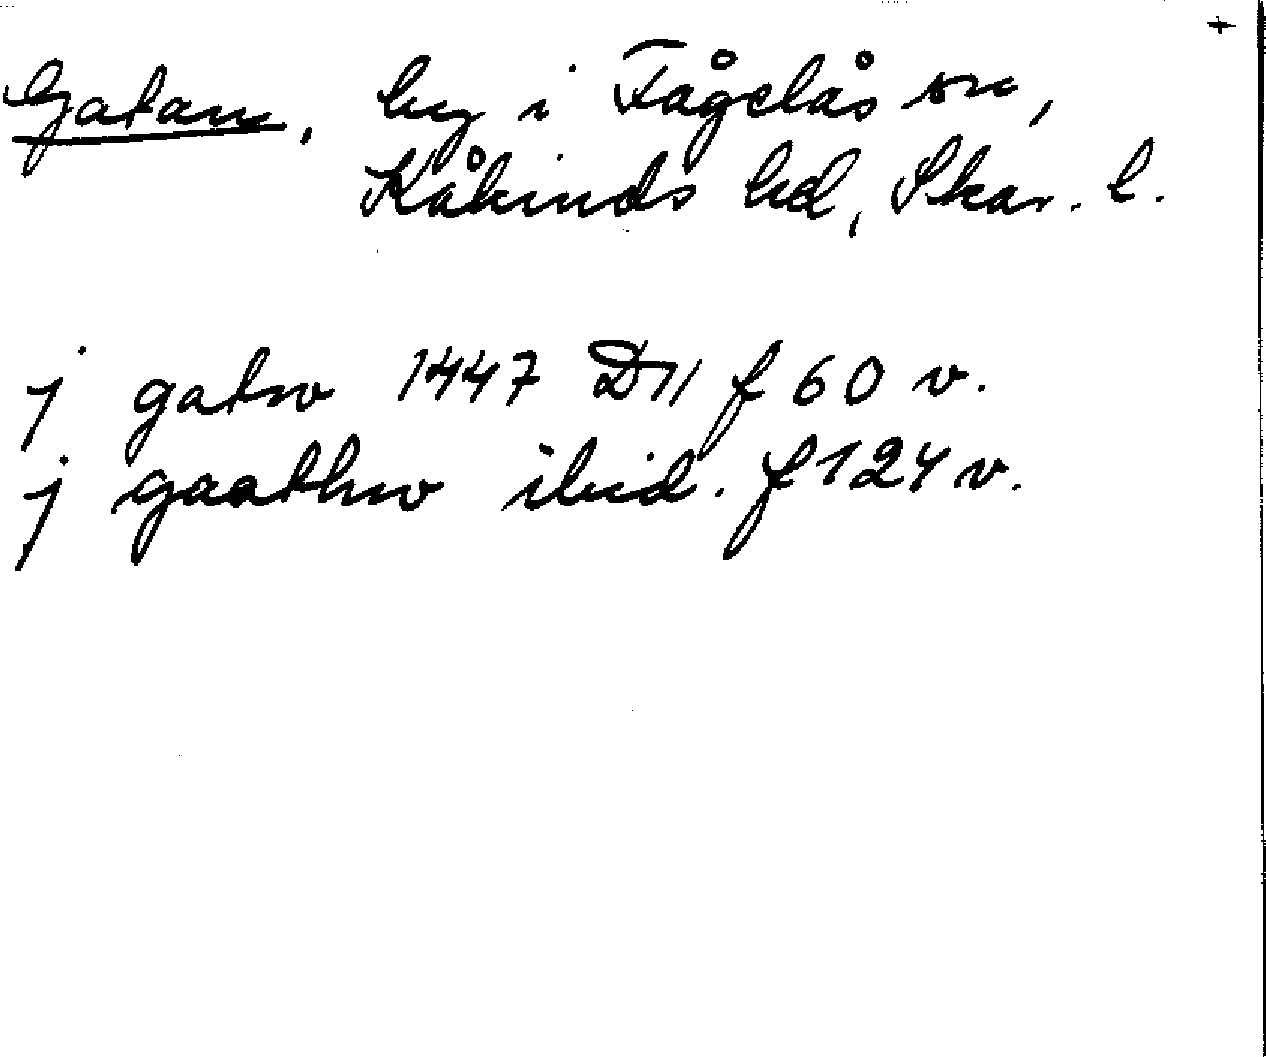 +
Gatan, by i Fågelås sn,
Kåkinds hd, Skar. l.
j gatw 1447 D11 f 60 v.
j gaathw ibid. f 124 v.